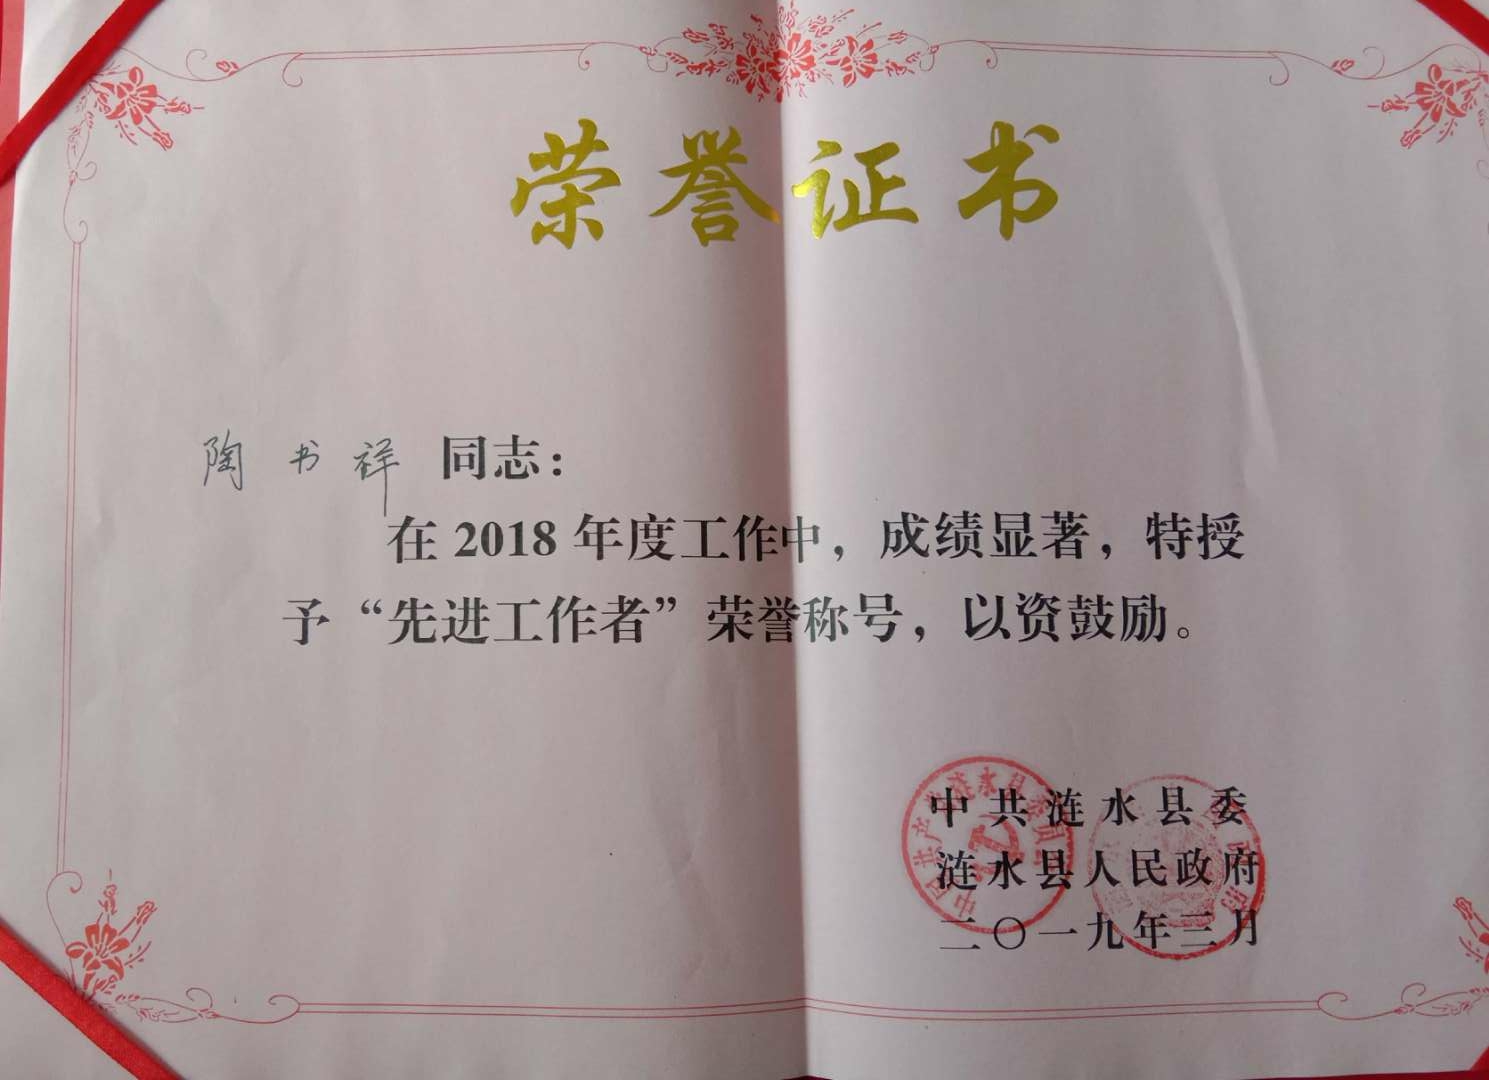 荣誉证书
陶书祥 同志：
在 2018 年度工作中，成绩显著，特授
予“先进工作者”荣誉称号，以资鼓励。
中共涟水县委
涟水县人民政府
二〇一九年三月